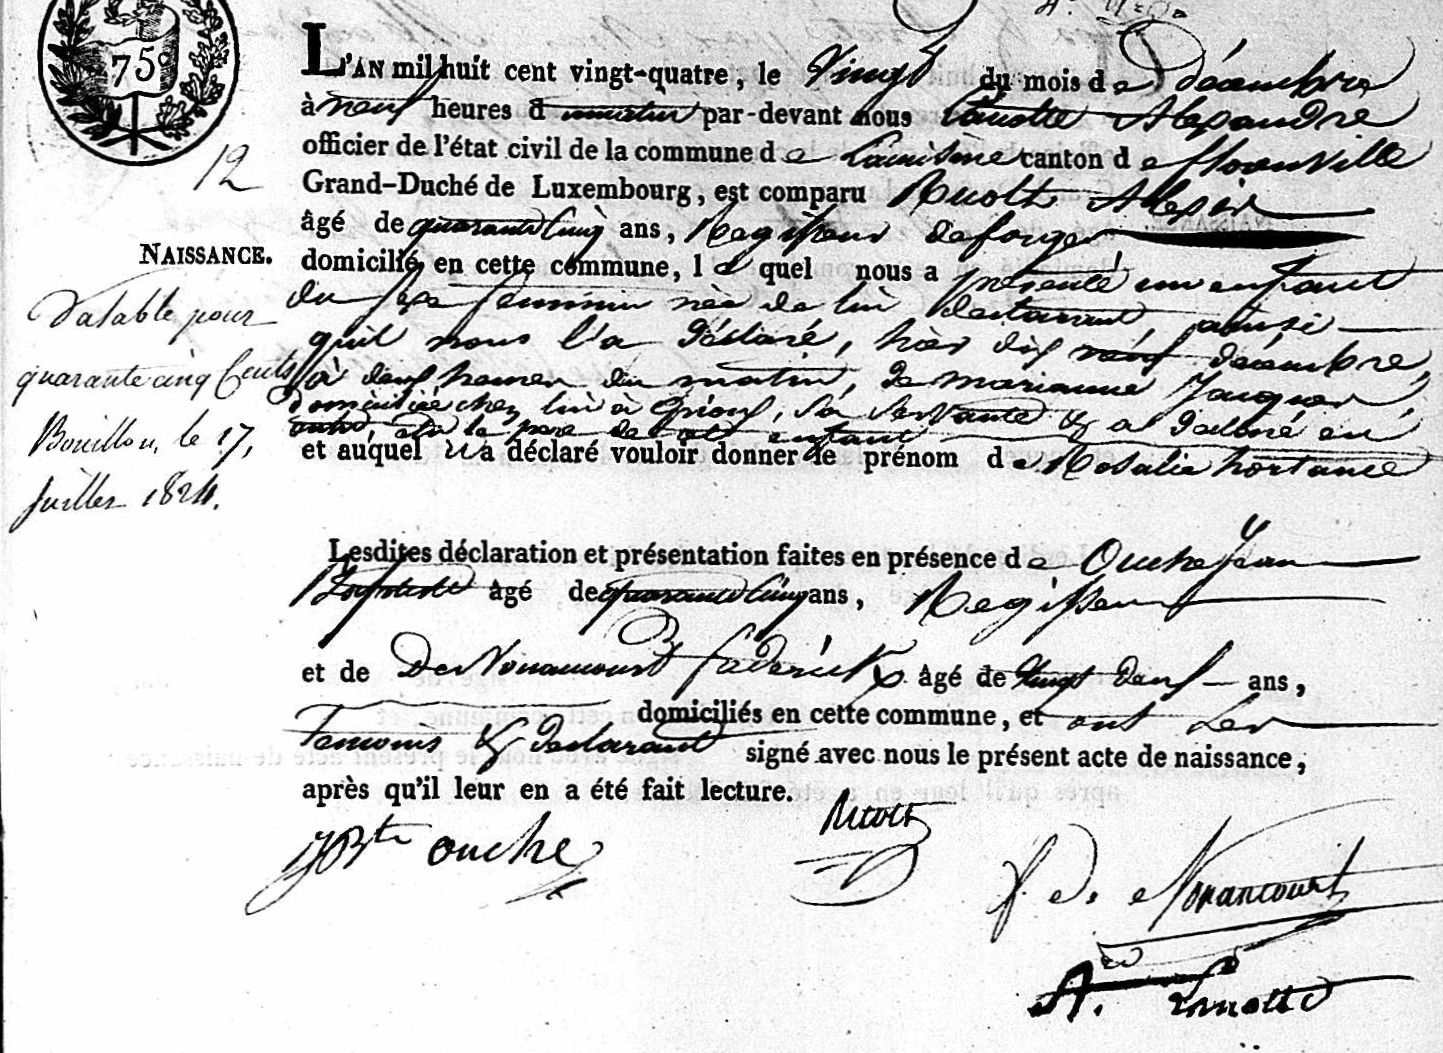 75c
L'AN mil huit cent vingt-quatre, le Vingt du mois de décembre
à neuf heures d matin par-devant nous Lanotte Alexandre
officier de l'état civil de la commune de canton de florenville
12
Grand-Duché de Luxembourg, est comparu Ricolt Alexis
âgé de quarante Cinq ans, Regisseur de forges
NAISSANCE.
domicilié en cette commune, lequel nous a présenté un enfant
du sexe feminin née de lui declarant, ainsi
qu'il nous l'a déclaré, hier dix neuf décembre,
à deux heures du matin, de marianne Jacques,
domiciliée chez lui à , sa servante & a declaré en
outre, etre le pere de cet enfant
et auquel il a déclaré vouloir donner le prénom de Rosalie hortance
Valable pour
quarante cinq Cents
Bouillon, le 17,
Juillet 1824.
Lesdites déclaration et présentation faites en présence de Ouche Jean
Baptiste âgé de quarante Cinq ans, Regisseur
et de De Nonancourt féderick âgé de Vingt deux ans,
domiciliés en cette commune, et ont les
Temoins & declarant signé avec nous le présent acte de naissance,
après qu'il leur en a été fait lecture.
JBte ouche
Ricolt
f. de Nonancourt
A. Lanotte